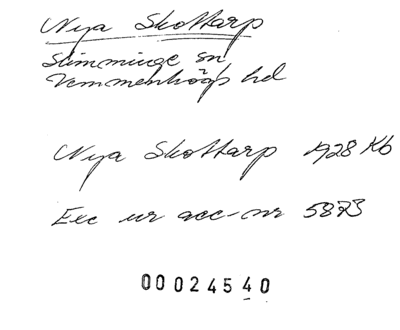 Nya Skottarp
Slimminge sn
Vemmenhögs hd
Nya Skottarp 1928 Kb
Exc ur acc-nr 5873
00024540